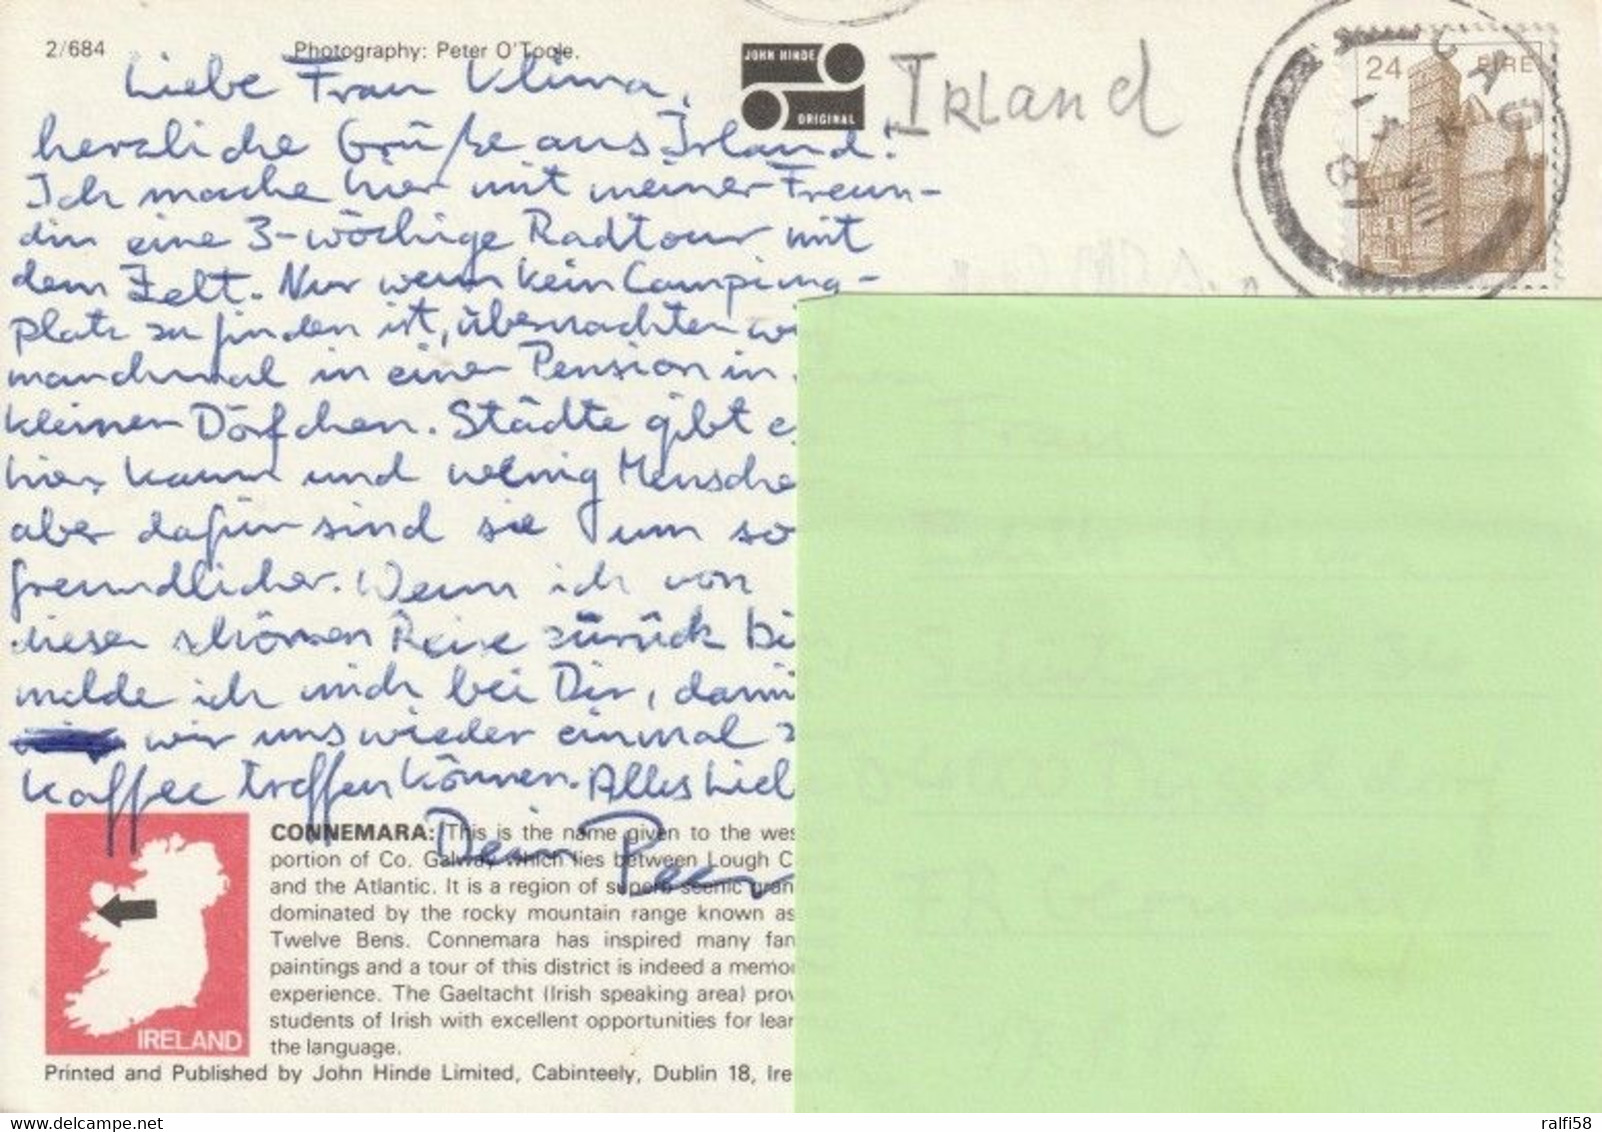 2/684
Photography: Peter O'Toole.
JOHN HINDE
ORIGINAL
Irland
24 EIRE
Liebe Frau Klima,
herzliche Grüße aus Irland!
Ich mache hier mit meiner Freun-
din eine 3-wöchige Radtour mit
dem Zelt. Nur wenn kein Camping-
platz zu finden ist, übernachten
manchmal in einer Pension in
kleinen Dörfchen. Städte gibt e
hier kaum und wenig Mensche
aber dafür sind sie um so
freundlicher. Wenn ich von
dieser schönen Reise zurück bi
melde ich mich bei Dir, dami
wir uns wieder einmal z
Kaffee treffen können. Alles Lieb
Dein Peer
CONNEMARA: This is the name given to the wes
portion of Co. Galway which lies between Lough C
and the Atlantic. It is a region of superb scenic gran
dominated by the rocky mountain range known as
Twelve Bens. Connemara has inspired many fam
paintings and a tour of this district is indeed a memo
experience. The Gaeltacht (Irish speaking area) prov
students of Irish with excellent opportunities for lear
the language.
IRELAND
Printed and Published by John Hinde Limited, Cabinteely, Dublin 18, Ire
delcampe.net
ralfi58